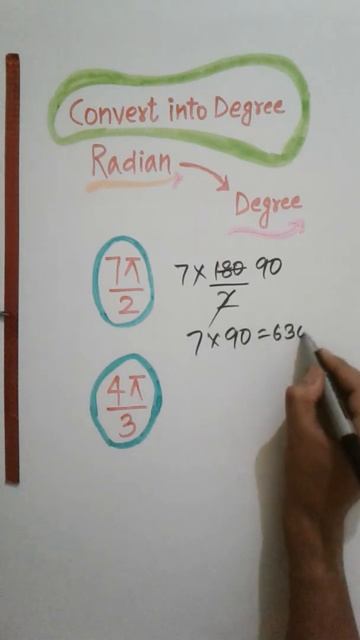 Convert into Degree
Radian
Degree
7π/2
7 × 180 90
2
7 × 90 = 630
4π/3